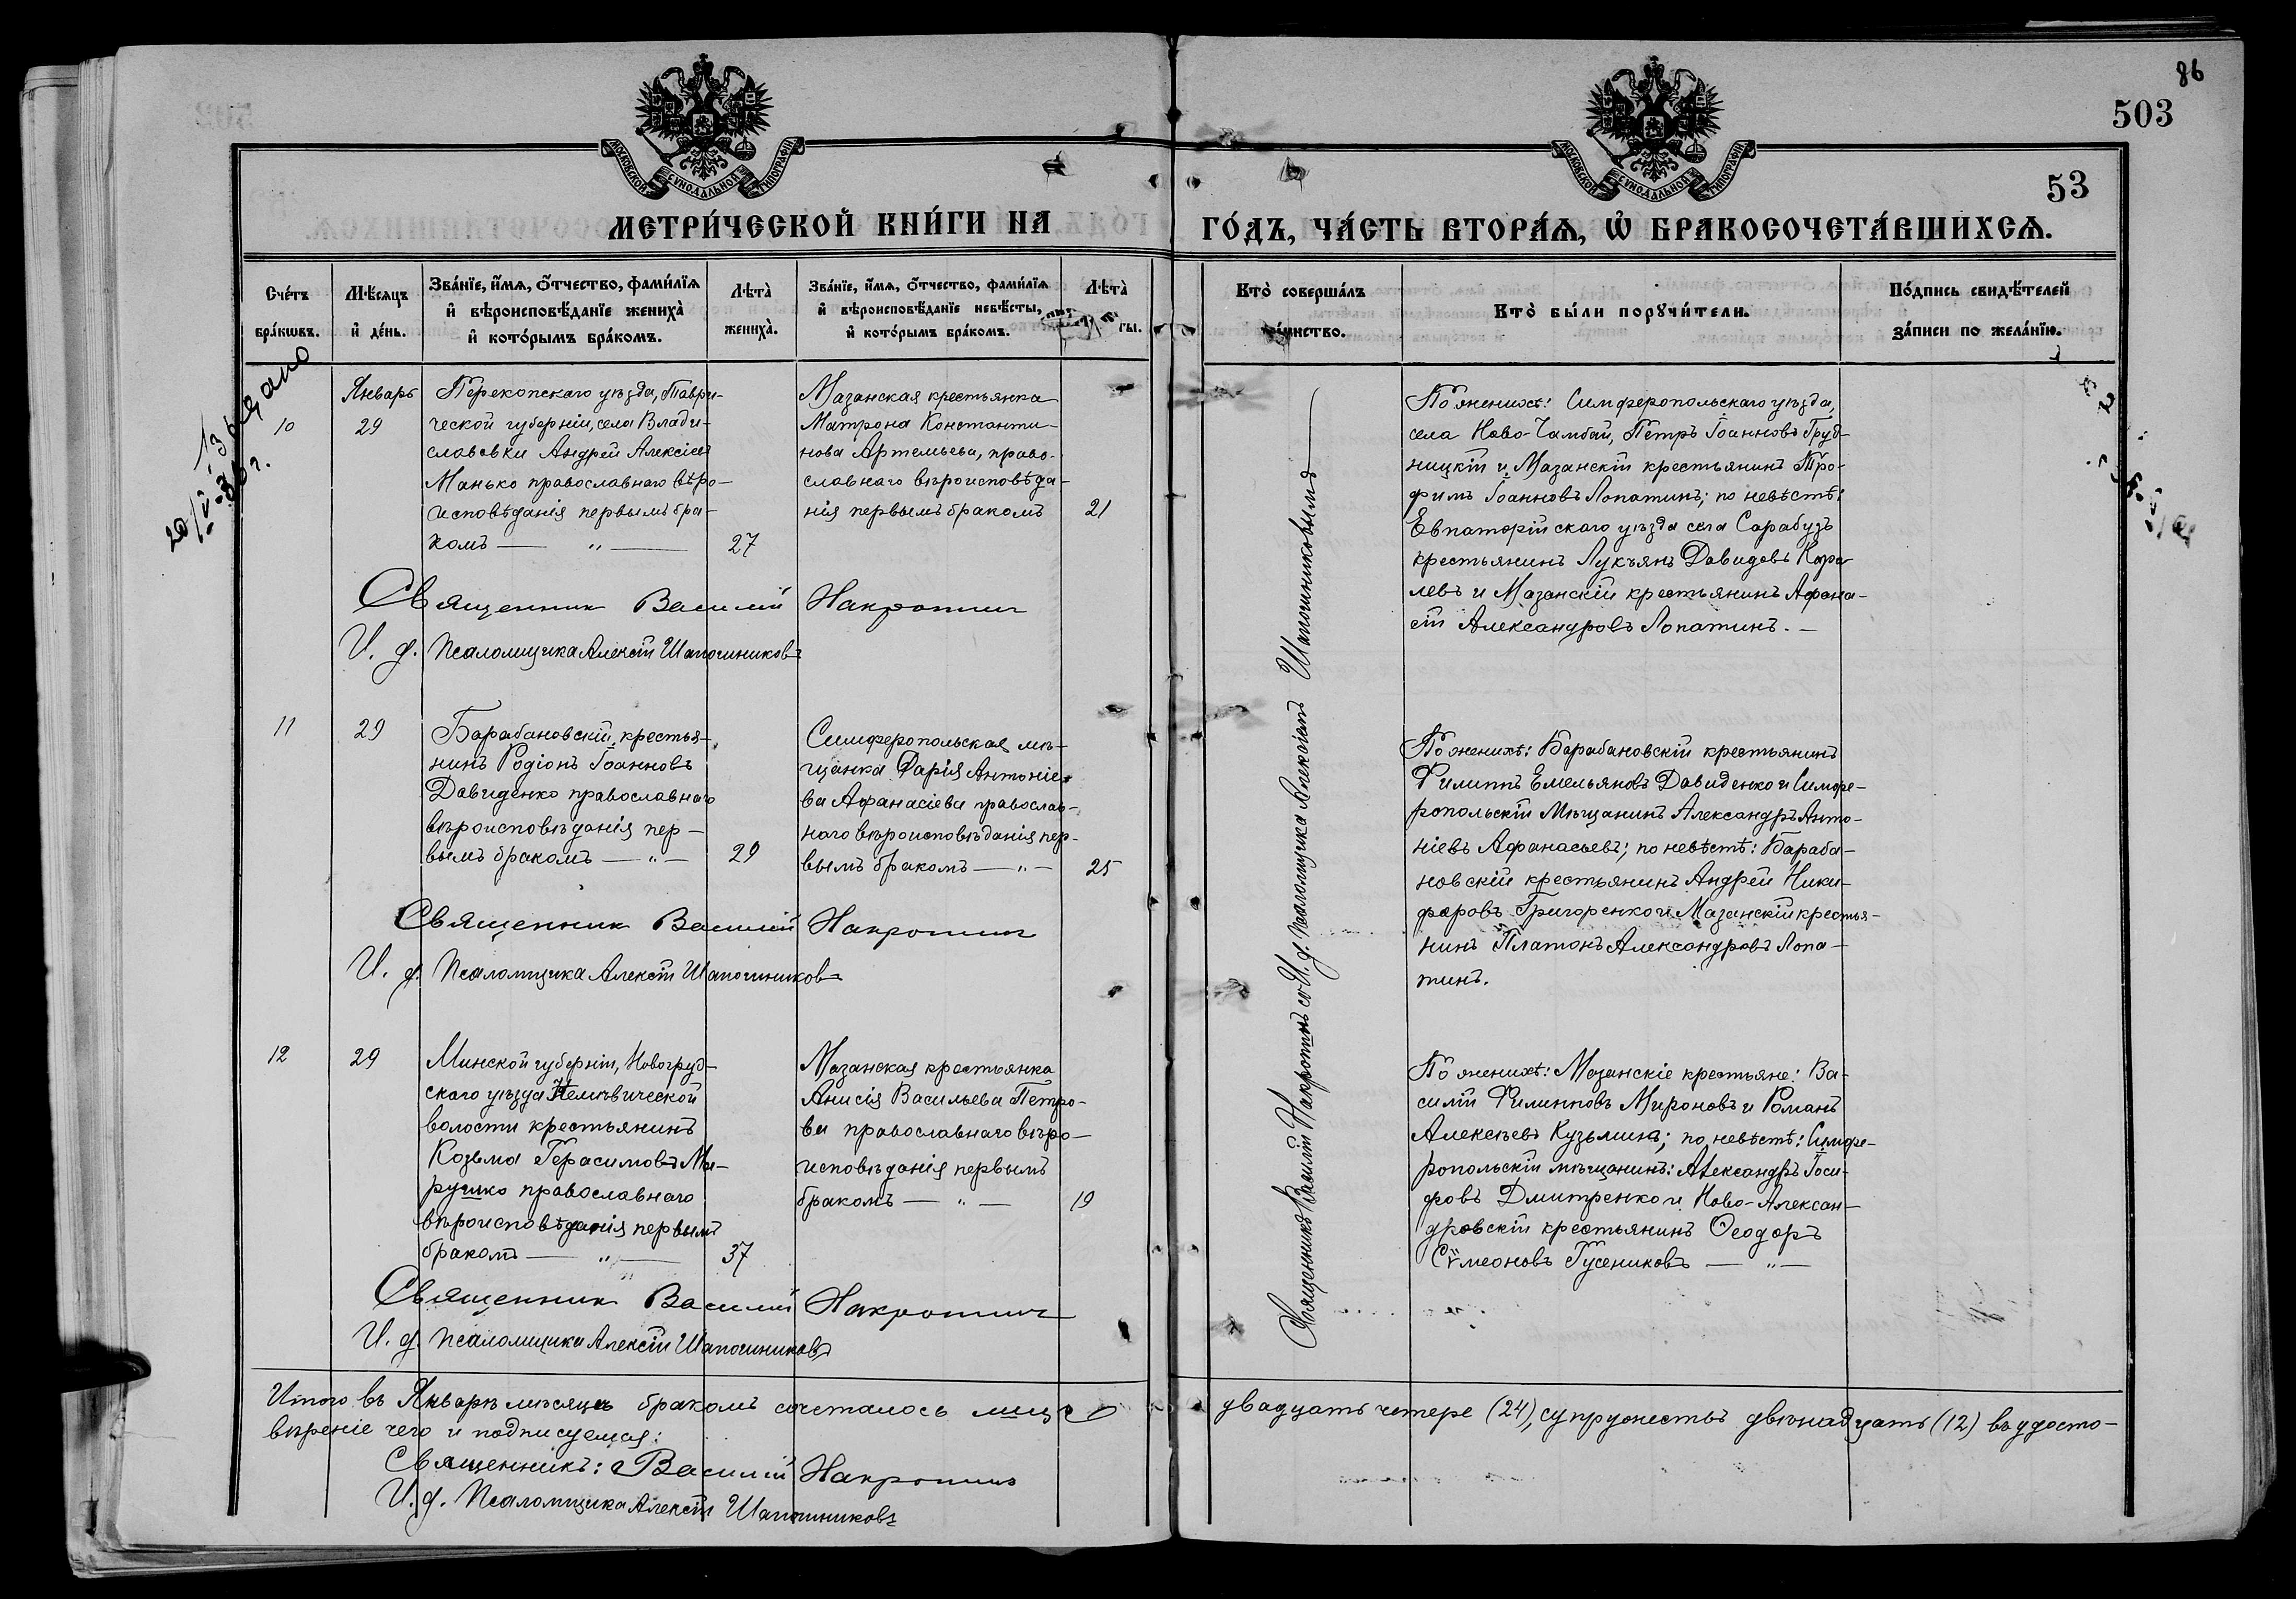 86
503
53
МОСКОВСКОЙ СѴНОДАЛЬНОЙ ТИПОГРАФІИ
МОСКОВСКОЙ СѴНОДАЛЬНОЙ ТИПОГРАФІИ
МЕТРИ́ЧЕСКОЙ КНИ́ГИ НА ГО́ДЪ, ЧА́СТЬ ВТОРА́Ѧ, Ѽ БРАКОСОЧЕТА́ВШИХСѦ.
Сче́тъ бра́кѡвъ.
Мѣ́сяцъ и҆ де́нь.
Зва́нїе, и҆́мѧ, ѻ҆́тчество, фами́лїѧ
и҆ вѣроисповѣ́данїе жениха̀
и҆ кото́рымъ бра́комъ.
Лѣта̀ жениха̀.
Зва́нїе, и҆́мѧ, ѻ҆́тчество, фами́лїѧ
и҆ вѣроисповѣ́данїе невѣ́сты,
и҆ кото́рымъ бра́комъ.
Лѣта̀
ты.
Кто̀ соверша́лъ
та́инство.
Кто̀ бы́ли порꙋчи́тели.
По́дпись свидѣ́телей
за́писи по жела́нїю.
10
Январь
29
Перекопскаго уѣзда, Таври-
ческой губерніи, села Влади-
славовки Андрей Алексіевъ
Манько православнаго вѣро-
исповѣданія первымъ бра-
комъ — „ —
27
Мазанская крестьянка
Матрона Константи-
нова Артемьева, право-
славнаго вѣроисповѣда-
нія первымъ бракомъ
21
Священник Василий Накропин
И. д. Псаломщика Алексій Шапошниковъ
По женихѣ: Симферопольскаго уѣзда,
села Ново-Чамбай, Петръ Іоанновъ Груд-
ницкій и Мазанскій крестьянинъ Тро-
фимъ Іоанновъ Лопатинъ; по невѣстѣ:
Евпаторійскаго уѣзда села Сарабузъ
крестьянинъ Лукъянъ Давидовъ Коро-
левъ и Мазанскій крестьянинъ Афана-
сій Александровъ Лопатинъ. —
11
29
Барабановскій крестья-
нинъ Родіонъ Іоанновъ
Давиденко православнаго
вѣроисповѣданія пер-
вымъ бракомъ — „ —
29
Симферопольская мѣ-
щанка Дарія Антоніе-
ва Афанасіева православ-
наго вѣроисповѣданія пер-
вымъ бракомъ — „ —
25
Священник Василий Накропин
И. д. Псаломщика Алексій Шапошниковъ
По женихѣ: Барабановскій крестьянинъ
Филиппъ Емельяновъ Давиденко и Симфе-
ропольскій Мѣщанинъ Александръ Анто-
ніевъ Афанасьевъ; по невѣстѣ: Бараба-
новскій крестьянинъ Андрей Ники-
форовъ Григоренко и Мазанскій крестья-
нинъ Платонъ Александровъ Лопа-
тинъ.
12
29
Минской губерніи, Новогруд-
скаго уѣзда
волости крестьянинъ
Козьма Герасимовъ Ма-
рушко православнаго
вѣроисповѣданія первымъ
бракомъ — „ —
37
Мазанская крестьянка
Анисія Васильева Петро-
ва православнаго вѣро-
исповѣданія первымъ
бракомъ — „ —
19
Священник Василий Накропин
И. д. Псаломщика Алексій Шапошниковъ
По женихѣ: Мазанскіе крестьяне: Ва-
силій Филипповъ Мироновъ и Романъ
Алексѣевъ Кузьминъ; по невѣстѣ: Симфе-
ропольскій мѣщанинъ: Александръ Іоси-
фовъ Дмитренко и Ново-Алексан-
дровскій крестьянинъ Ѳеодоръ
Сѵмеоновъ Гусениковъ — „ —
Священникъ Василій Накропинъ съ И. д. Псаломщика Алексіемъ Шапошниковымъ
Итого въ Январѣ мѣсяцѣ бракомъ сочеталось лицъ двадцать четере (24), супружествъ двѣнадцать (12) въ удосто-
вѣреніе чего и подписуемся:
Священникъ: Василий Накропин
И. д. Псаломщика Алексій Шапошниковъ